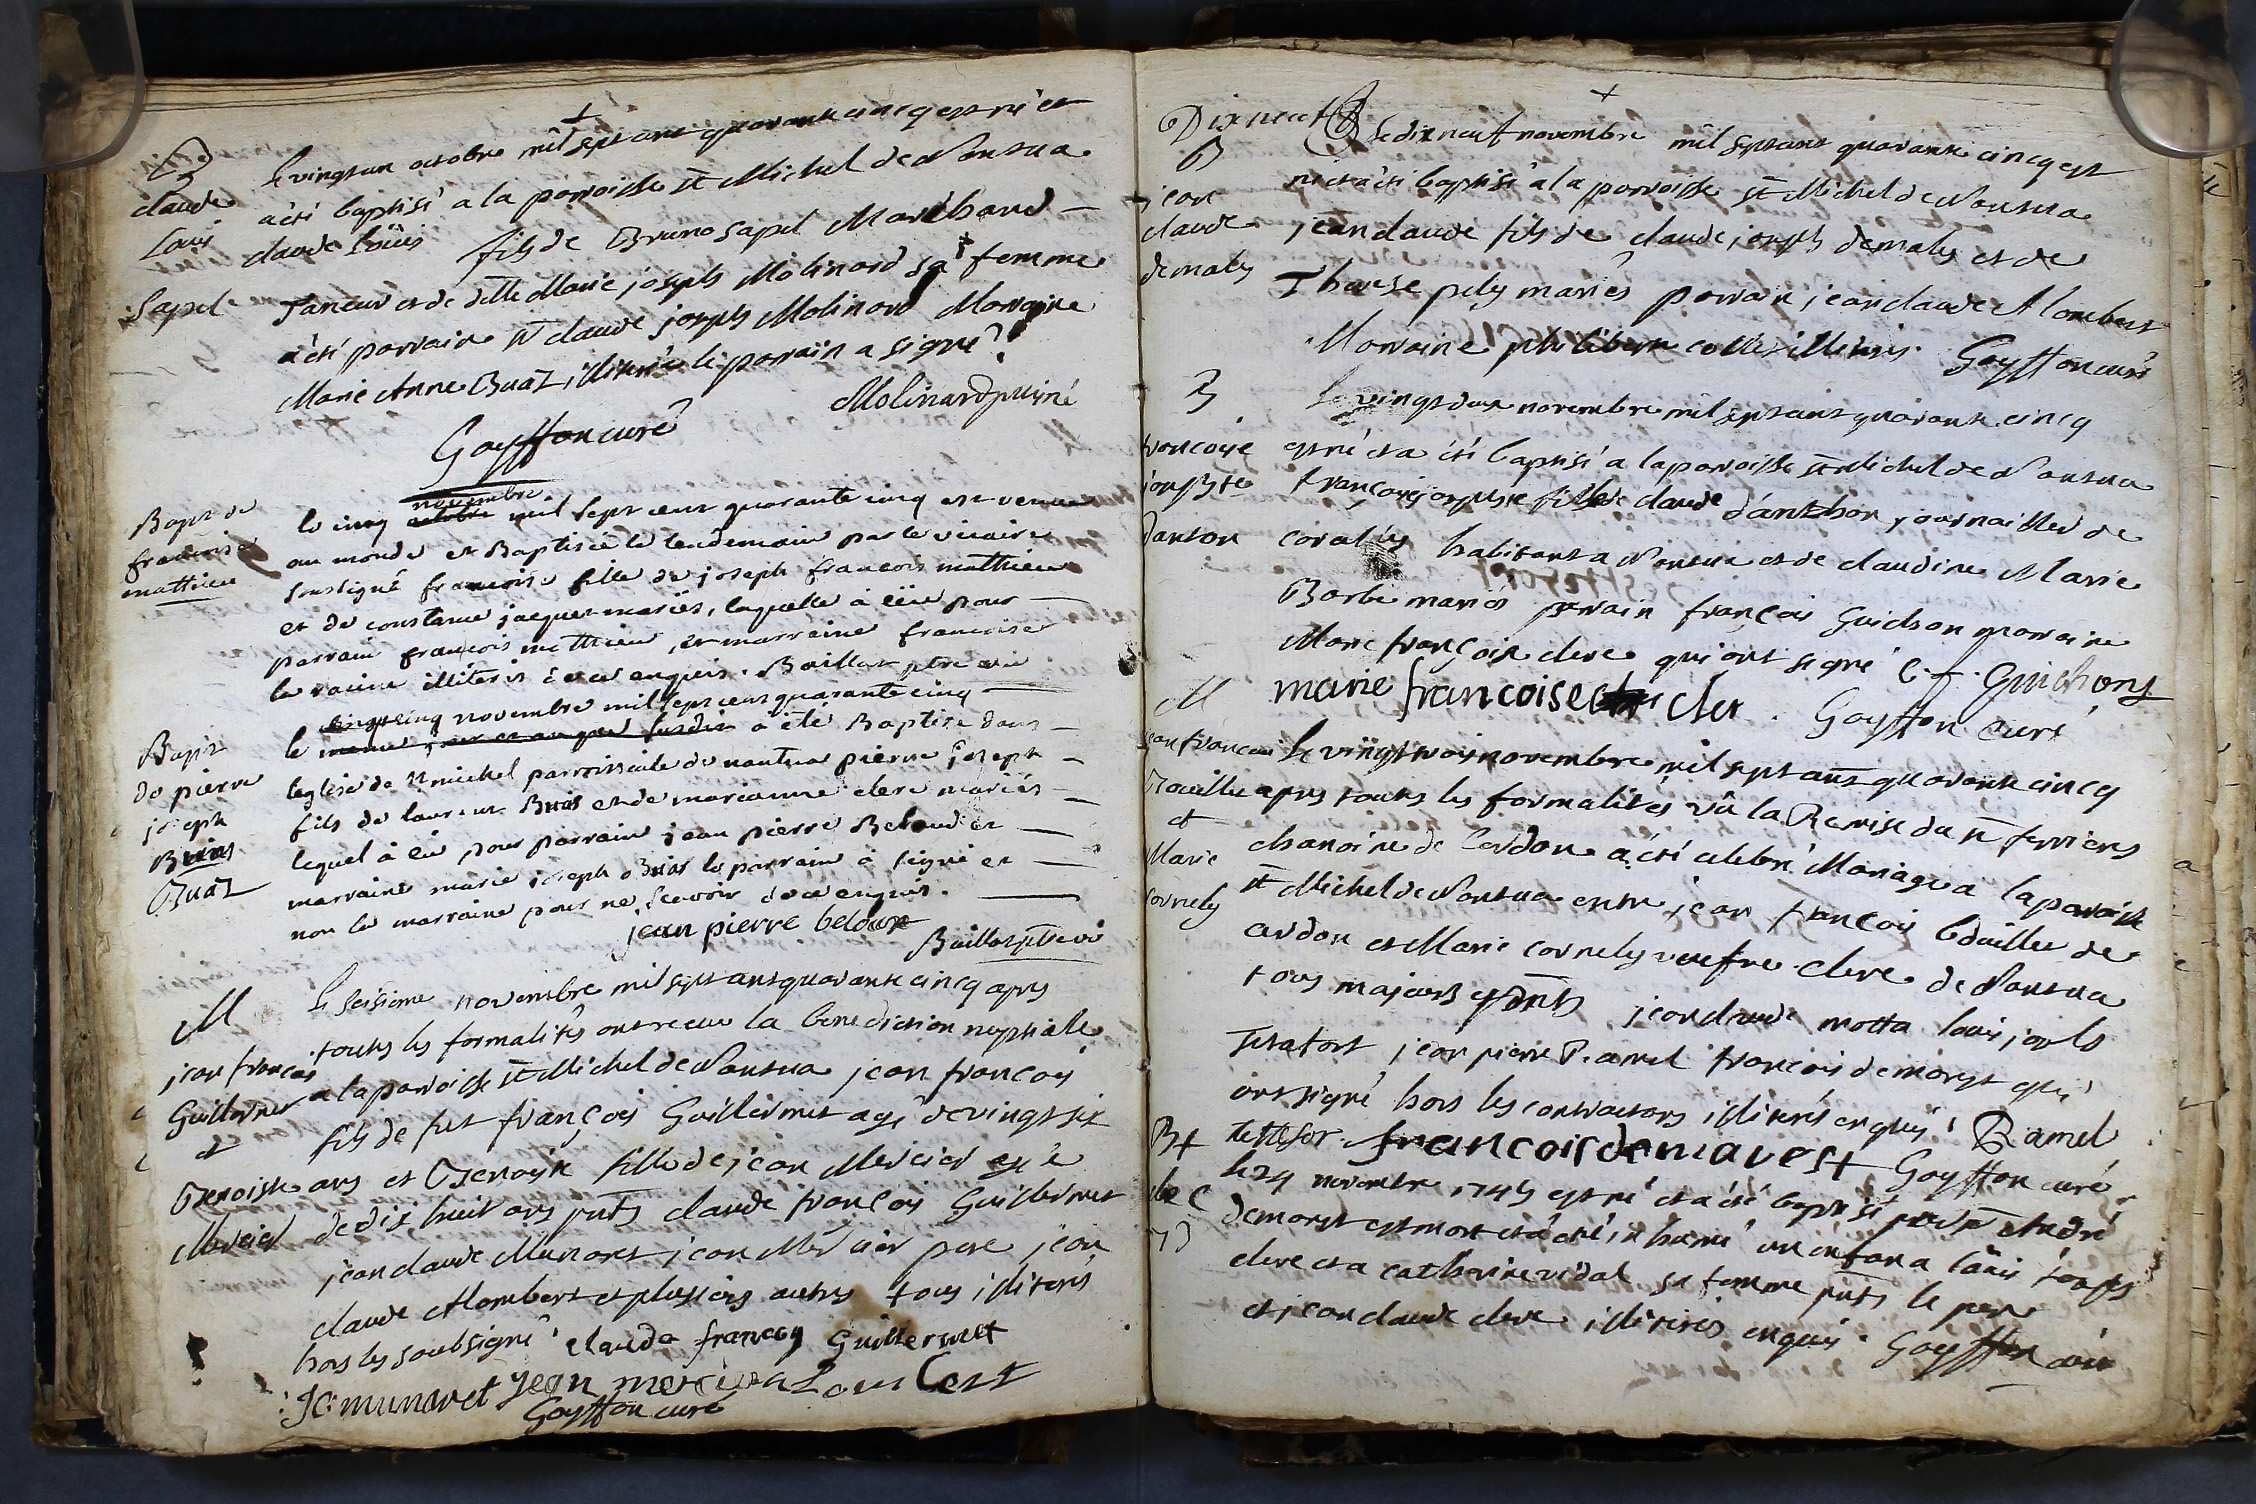 B
claude
Louis
Sapel
le vingt un octobre mil sept cent quarante cinq est né et
a été baptisé a la parroisse St Michel de Nantua
claude Louis fils de Bruno Sapel Marchand
Taneur et de dlle Marie joseph Molinard sa femme
a été parrain Sr claude joseph Molinard Marraine
Marie Anne Buaz, illiterée le parrain a signé
Molinard puiné
Goyffon curé
Bapt de
francoise
mattieu
le cinq octobre novembre mil sept cent quarante cinq est venue
au monde et Baptisée le lendemain par le vicaire
soussigné francoise fille de joseph francois matthieu
et de constance jacquet mariés, laquelle a eüe pour
parrain francois matthieu, et marraine francoise
la racine illiterés de ce enquis. Baillat ptre vic
Bapt
de pierre
joseph
Buas
Buaz
le vingt cinq novembre mil sept cent quarante cinq
a été Baptisé dans
leglise de St michel parroissiale de nantua pierre joseph
fils de laurent Buas et de marianne clerc mariés
lequel à eu pour parrain jean pierre Beloud et
marraine marie joseph Buas le parrain à signé et
non la marraine pour ne scavoir de ce enquis.
jean pierre beloud
Baillat ptre vic
M
jean francois
Guillermet
et
Benoiste
Mercier
le seisieme novembre mil sept cent quarante cinq apres
toutes les formalités ont receu la benediction nuptiale
a la parroisse St Michel de Nantua jean francois
fils de fut françois Guillermet agé de vingt six
ans et Benoiste fille de jean Mercier agée
de dix huit ans pnts claude françois Guillermet
jean claude Munaret jean Mercier pere jean
claude Alombert et plusieurs autres tous illiterés
hors les soubsigné claude francoy Guillermet
JC munaret jean mercier Louis Cert
Goyffon curé
Dixneuf
B
jean
claude
demaley
Le dix neuf novembre mil sept cent quarante cinq est
né et a été baptisé a la parroisse St Michel de Nantua
jean claude fils de claude joseph demaley et de
Therese pely mariés parrain jean claude Alombert
Marraine philiberte collet illiterés. Goyffon curé
B
francoise
josephte
danton
Le vingt deux novembre mil sept cent quarante cinq
est né et a été baptisé a la parroisse St Michel de Nantua
françoise josephte fille de claude d'anthon journaillier de
habitant a Nantua et de claudine Marie
Barbe mariés parrain françois Guichon marraine
Marie françoise clerc qui ont signé Guichon
marie francoise cler. Goyffon curé
M
jean francois
Bouillet
et
Marie
Cornely
Le vingt trois novembre mil sept cent quarante cinq
apres toutes les formalités vû la Remise du Sr ferriers
chanoine de Cerdon a été celebré Mariage a la parroisse
St Michel de Nantua entre jean françois Bouillet de
cerdon et Marie cornely veufve clerc de Nantua
tous majeurs presents jean claude motta louis joseph
Tetafort jean pierre Ramel françois demarest qui
ont signé hors les contractans illiterés enquis. Ramel
tettefor. francois demavest Goyffon curé
Bt
le 24 novembre 1745 est né et a été baptisé par Sr André
demarest est mort et a été inhumé un enfan a louis joseph
clerc et a catherine vidal sa femme pnts le pere
et jean claude clerc illiterés enquis. Goyffon curé